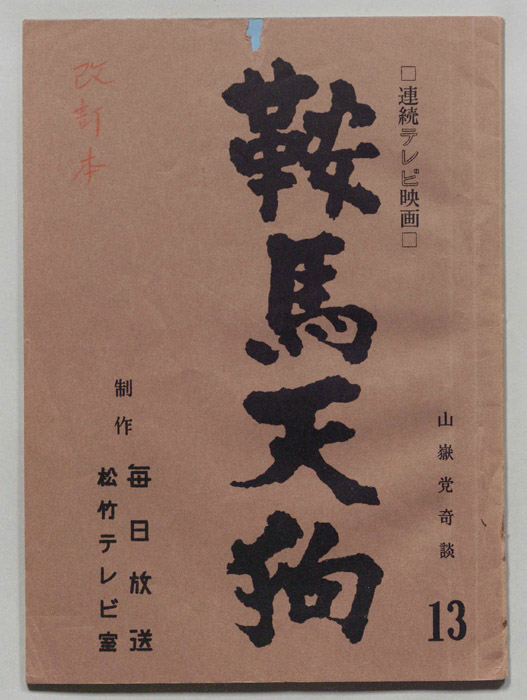 山嶽党奇談
13
□連続テレビ映画□
鞍馬天狗
制作
毎日放送
松竹テレビ室
改訂本